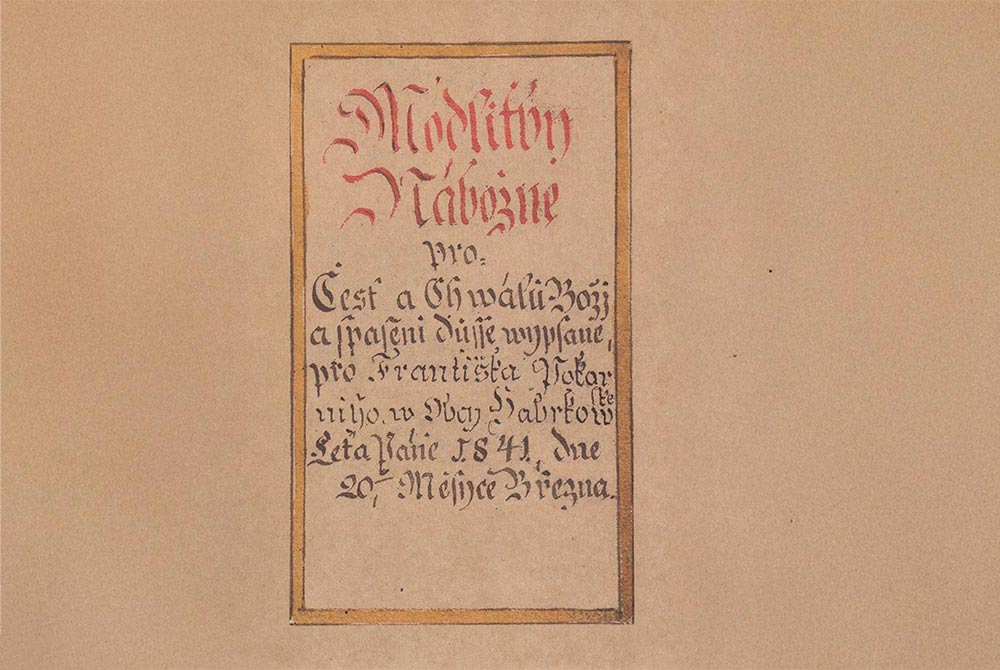 Modlitby
Nábožne
pro.
Cest a Chwálu Boži
a spaseni dusse wypsane,
pro Františka Pokor
niho. w Obcy Habrkowske
Leta Páně 1841, dne
20, Měsyce Března.